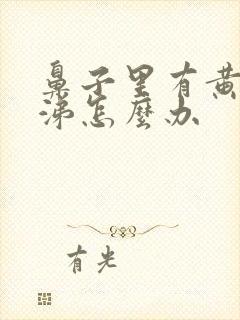 鼻子里有黄
涕怎麼办
有光